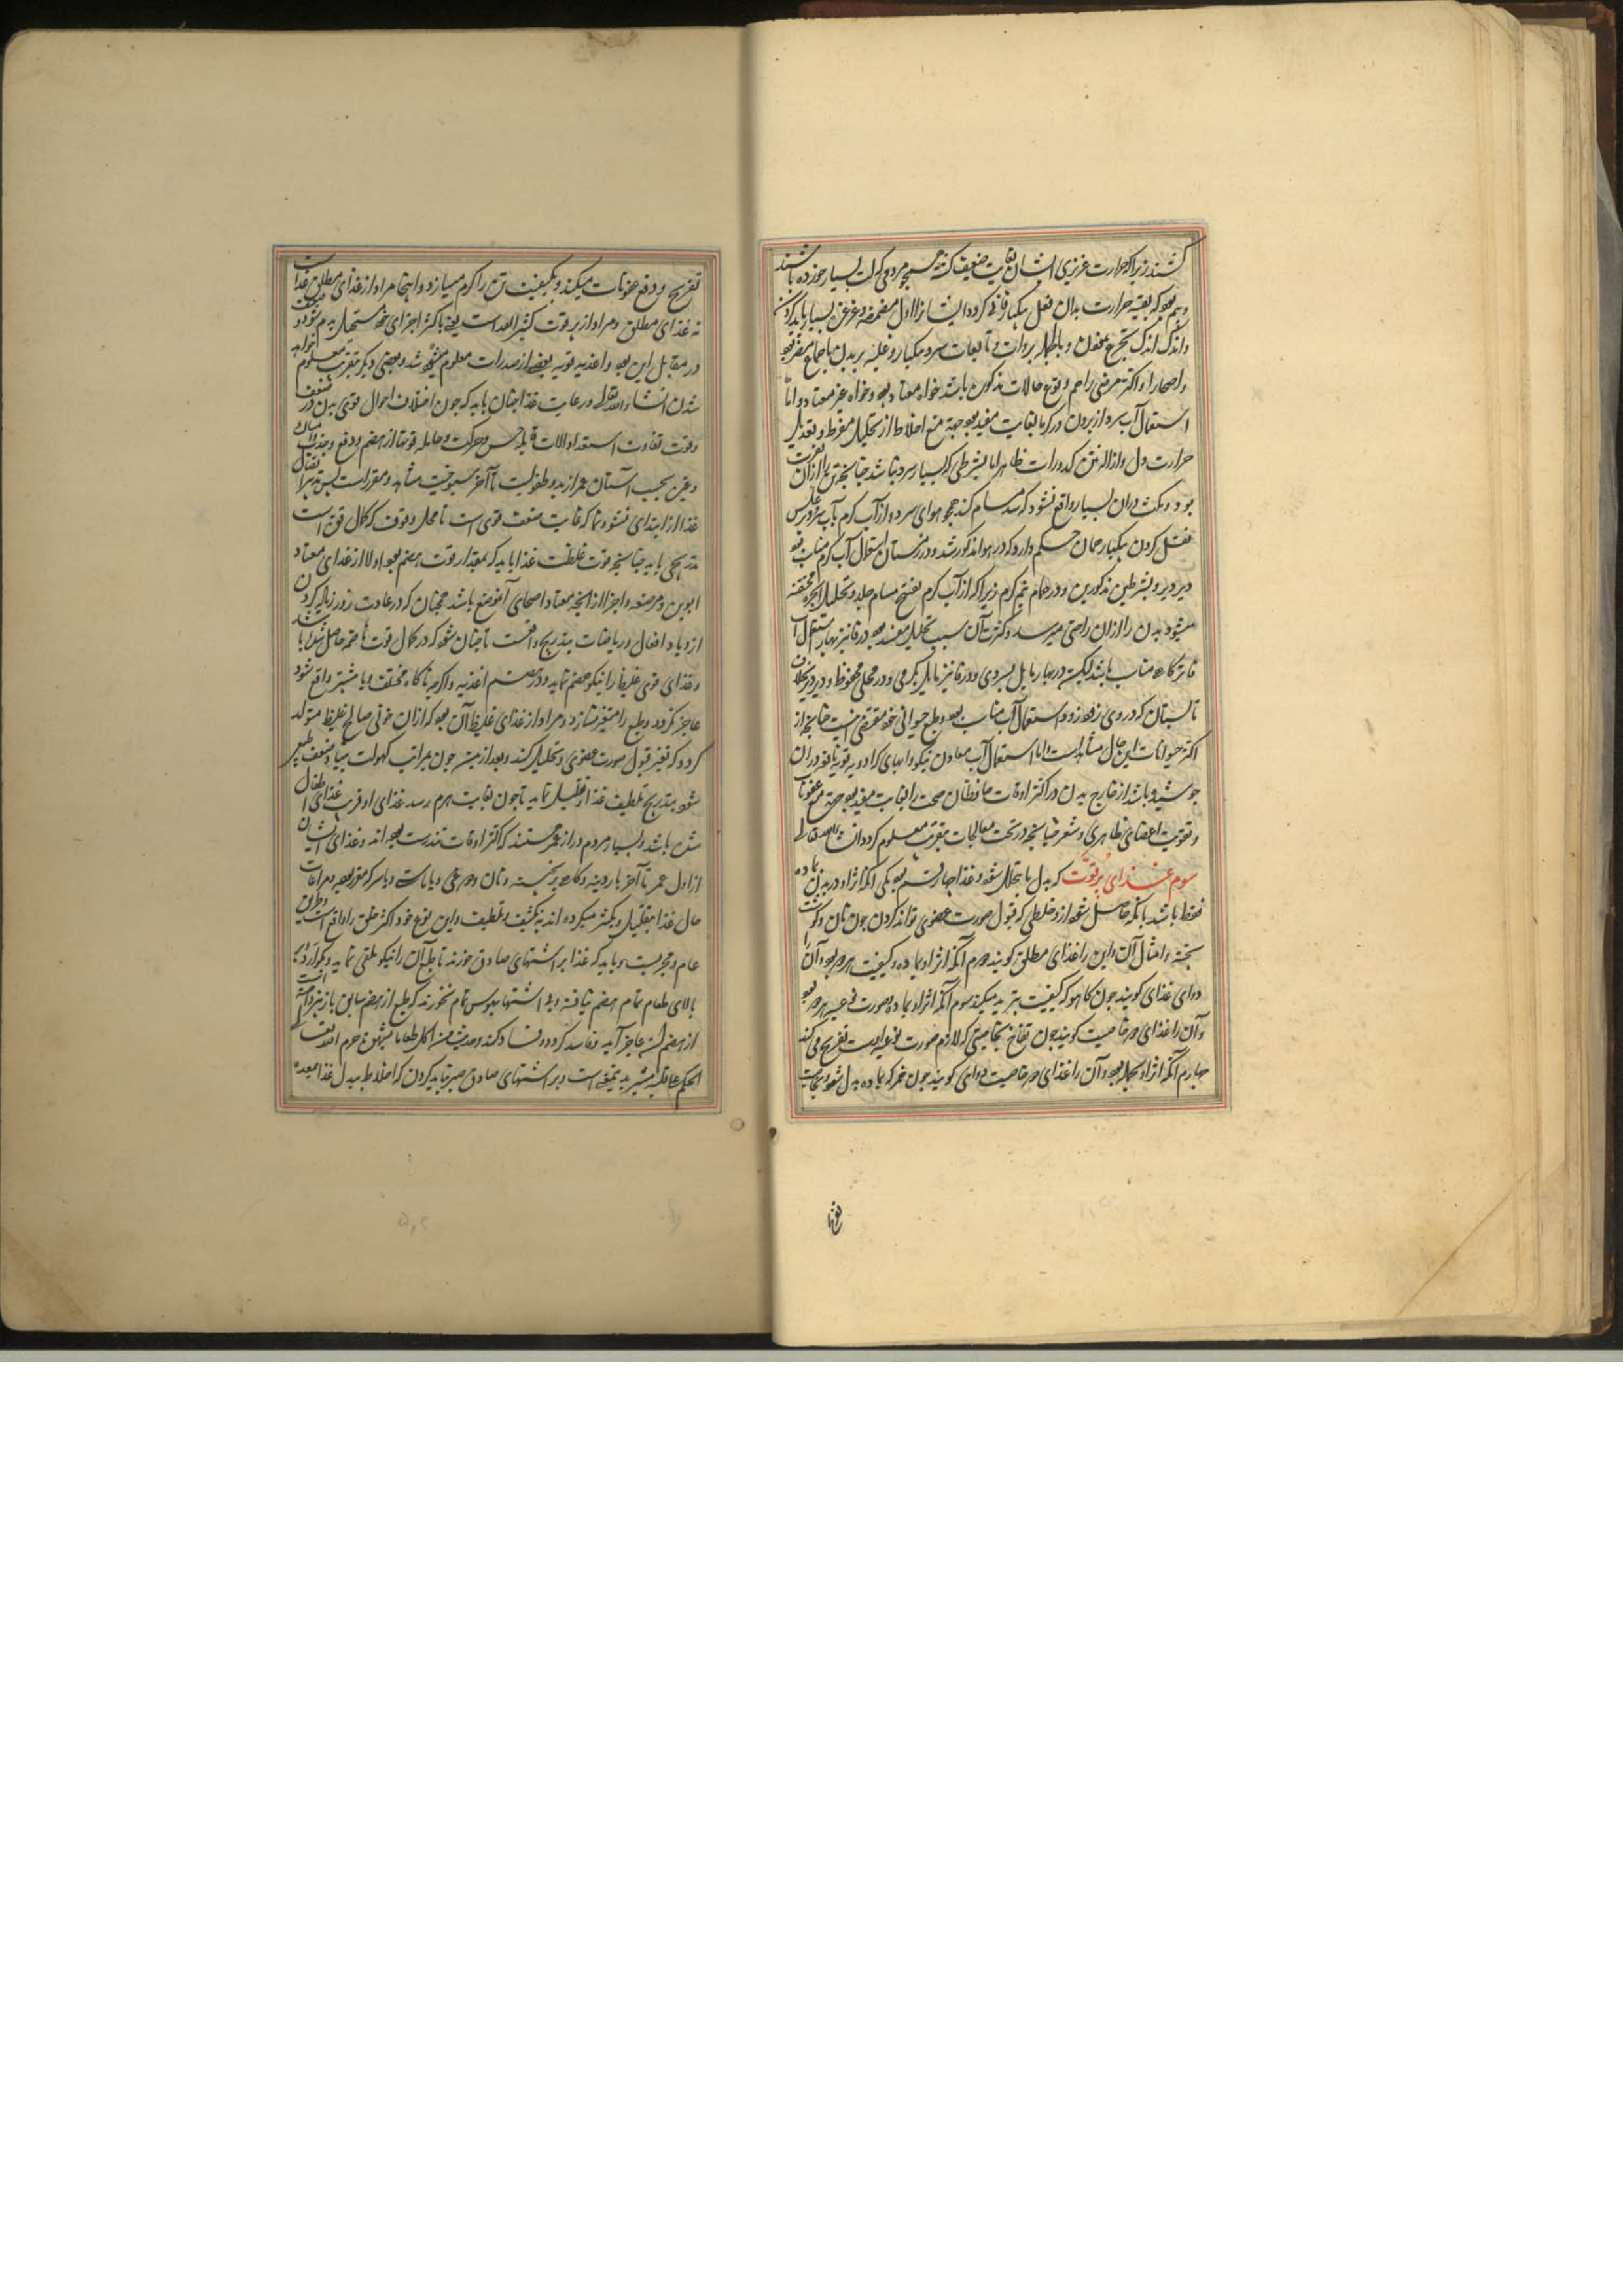 کشند زیرا که حرارت غریزی ایشان بغایت ضعیف گشته همچو مردمی که لت بسیار خورده باشند
و بیم بود که بقیه حرارت بدان فعل یکبار فانی گردد ایشانرا اول مضمضه و غرغره بسیار باید کردن
و اندک اندک تجرع نمودن و باطهار بروات و تابعات سرد یکبار و غلبه بر بدن باجماع مضر بود
و اصحا را و اکثر مرضی را هم وقوع حالات مذکوره باشد خواه معتاد بود و خواه غیر معتاد و اما
استعمال آب سرد از برون در گرما بغایت مفید بود جهة منع اخلاط از تحلیل مفرط و تعدیل
حرارت دل و ازاله تن کدورات ظاهر اما بشرطی که بسیار سرد نباشد چنانچه تن را از آن نفرت
بود و مکث در آن بسیار واقع نشود که مسام کند همچو هوای سرد و از آب گرم بآب سرد پس
فعل کردن یکبار همان حکم دارد که در هوا مذکور شد و در زمستان استعمال آب گرم مناسب بود
دیر دیر و بشرطین مذکورین و در حمام نیم گرم زیرا که از آب گرم تفتح مسام جلد و تحلیل ابخره محتقنه
میشود بدن را از آن راحتی میرسد و کثرت آن سبب تحلیل مفسد بود در پائیز و بهار استعمال آب
فاتر گاه مناسب باشد لیکن در بهار مایل بسردی و در پائیز مایل بگرمی و در محلی محفوظ و دیر دیر بخلاف
تابستان که در وی زود زود استعمال آب مناسب بود و طبع حیوانی خود مقتضی اینست چنانچه از
اکثر حیوانات این حال مشاهد است و اما استعمال آب معادن نیکو و آبهای که ادویه قویه نافعه در آن
جوشیده باشد از خارج بدن در اکثر اوقات حافظان صحت را بغایت مفید بود جهة منع عفونات
و تقویت اعضای ظاهری و شعر چنانچه در تحت معالجات بتقریب معلوم گردد ان شاء الله تعالی
سوم غذای پرقوت که بدل ما یتحلل شود و غذا چهار قسم بود یکی آنکه اثر او در بدن بماده
فقط باشد بآنکه حاصل شود از و خلطی که قبول صورت عضوی تواند کردن چون نان و گوشت
پخته و امثال آن و این را غذای مطلق گویند دوم آنکه اثر او بماده و کیفیت هر دو بود و آن را
دوای غذای گویند چون کاهو که کیفیت تبرید میکند سوم آنکه اثر او بماده و صورت نوعیه هر دو بود
و آن را غذای ذو خاصیت گویند چون تفاح بخاصیتی که لازم صورت نوعیه اوست تفریح می کند
چهارم آنکه اثر او بهمه بود و آن را غذای ذو خاصیت دوای گویند چون خمر که بماده بدل شود و بخاصیت
تفریح
تفریح و دفع عفونات میکند و بکیفیت تن را گرم میسازد و اینجا مراد از غذای مطلق غذاست
نه غذای مطلق و مراد از پرقوت کثیر الغذاست یعنی باکثر اجزای خود مستحیل بدم شود و ضعیف
در مقابل این بود و اغذیه قویه بعضی از صدرات معلوم شد و بعضی دیگر بتقریب معلوم خواهد
شدن انشاء الله تعالی و رعایت غذا چنان باید که چون اختلاف احوال قوی بدن در ضعف
وقوت تفاوت استعداد آلات قابله حس و حرکت و حامله قوتها از هضم و دفع و جذب و امساک
و غیره بحسب اسنان عمر از بدو طفولیت تا آخر شیخوخیت مشاهد و مقرر است پس تدبیر انتقال
غذا از ابتدای نشو و نما که غایت ضعف قوی است تا محل وقوف که کمال قوت است
تدریجی باید چنانچه قوت غلظت غذا باید که بمقدار قوت هضم بود اولا از غذای معتاد
ابوین و مرضعه و اجزا از آنچه معتاد اصحای آن موضع باشد همچنان که در عادت زور زیاده کردن
ازدیاد افعال و ریاضات بتدریج واقعست تا چنان شود که در کمال قوت هاضمه حاصل شده باشد
و غذای قوی غلیظ را نیکو هضم نماید و در هضم اغذیه و اگرچه ناگاه مختلف و یا بیشتر واقع شود
عاجز نگردد و طبع را متغیر نسازد و مراد از غذای غلیظ آن بود که از آن خونی صالح غلیظ متولد
گردد که قبول صورت عضوی و تحلیل کند و بعد از بیست چون بمراتب کهولت بیاید و ضعف طبیعی
شود بتدریج تلطیف غذا و تقلیل نماید تا چون بغایت هرم رسد غذای او قریب غذای اطفال
مثل باشد و بسیار مردم دراز عمر هستند که اکثر اوقات تندرست بوده اند و غذای ایشان
از اول عمر تا آخر باردینه و کاه و نان و دوغی و یا ماست و یا سرکه مقرر بوده و مراعات
حال غذا بتقلیل و تکثیر میکرده اند نه بکثیف و تلطیف و این نوع خود اکثر خلق را واقع است و طریق
عام و مجربست و باید که غذا بر اشتهای صادق خورند تا طبع آن را نیکو تلقی نماید و بگوارد و بر
بالای طعام تمام هضم نیافته و بی اشتها و بهوس تمام نخورند که طبع از هضم سابق باز نپرداخته است
از هضم آن عاجز آید و فاسد گردد و فساد کند و حدیث من اکل طعاما حرم الله تعالی
الحکم علی قلبه مشیر بدین معنی است و بر اشتهای صادق صبر نباید کردن که اخلاط بدل غذا بمعده